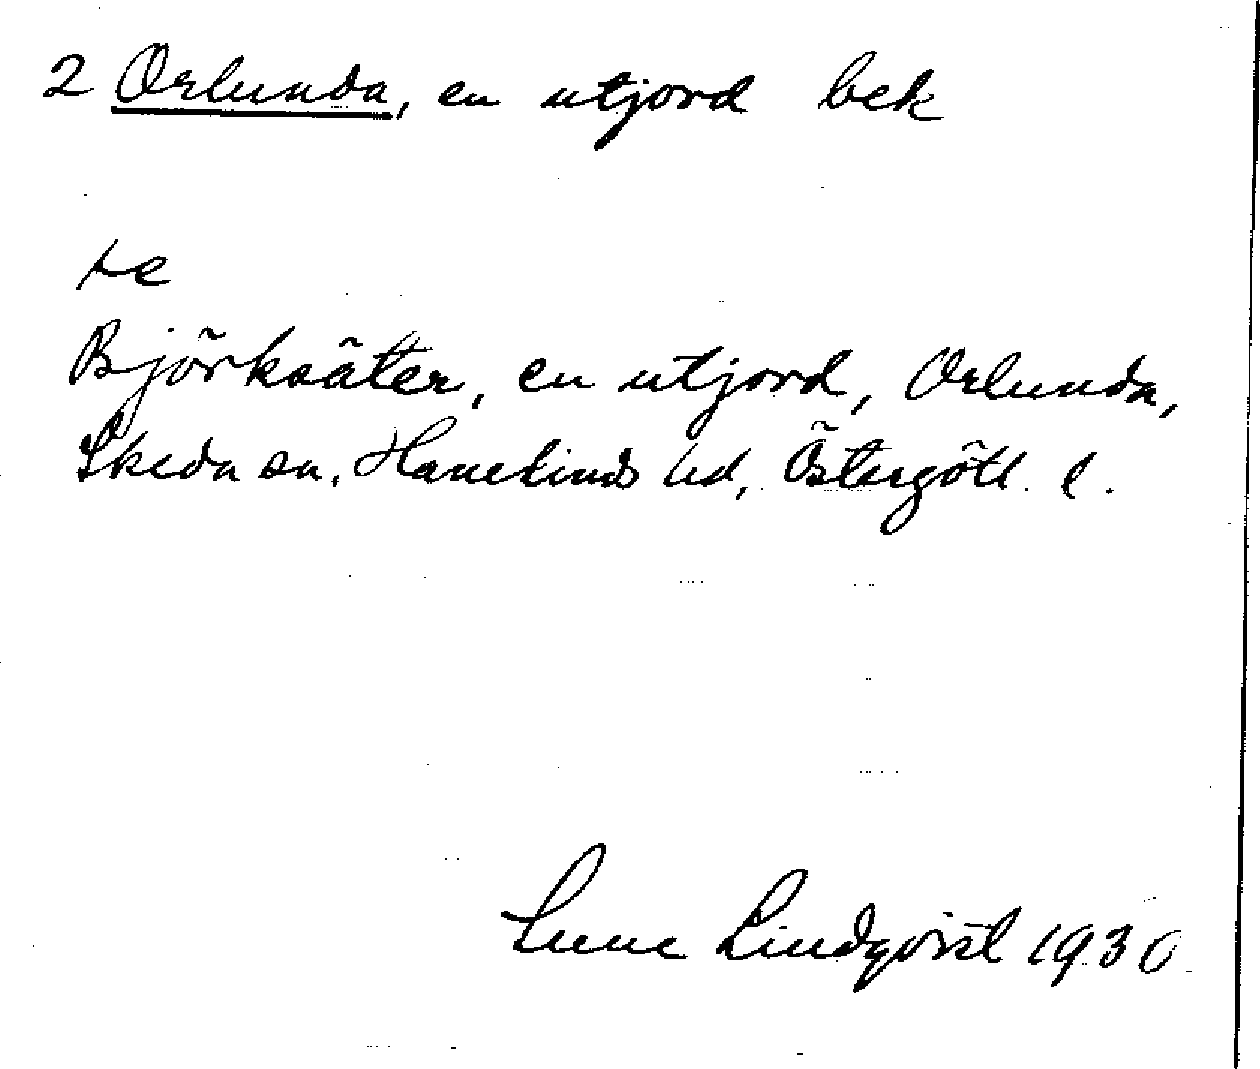 2 Orlunda, en utjord bek
se
Björksäter, en utjord, Orlunda,
Skeda sn, Hanekinds hd, Östergötl. l.
Sune Lindqvist 1930